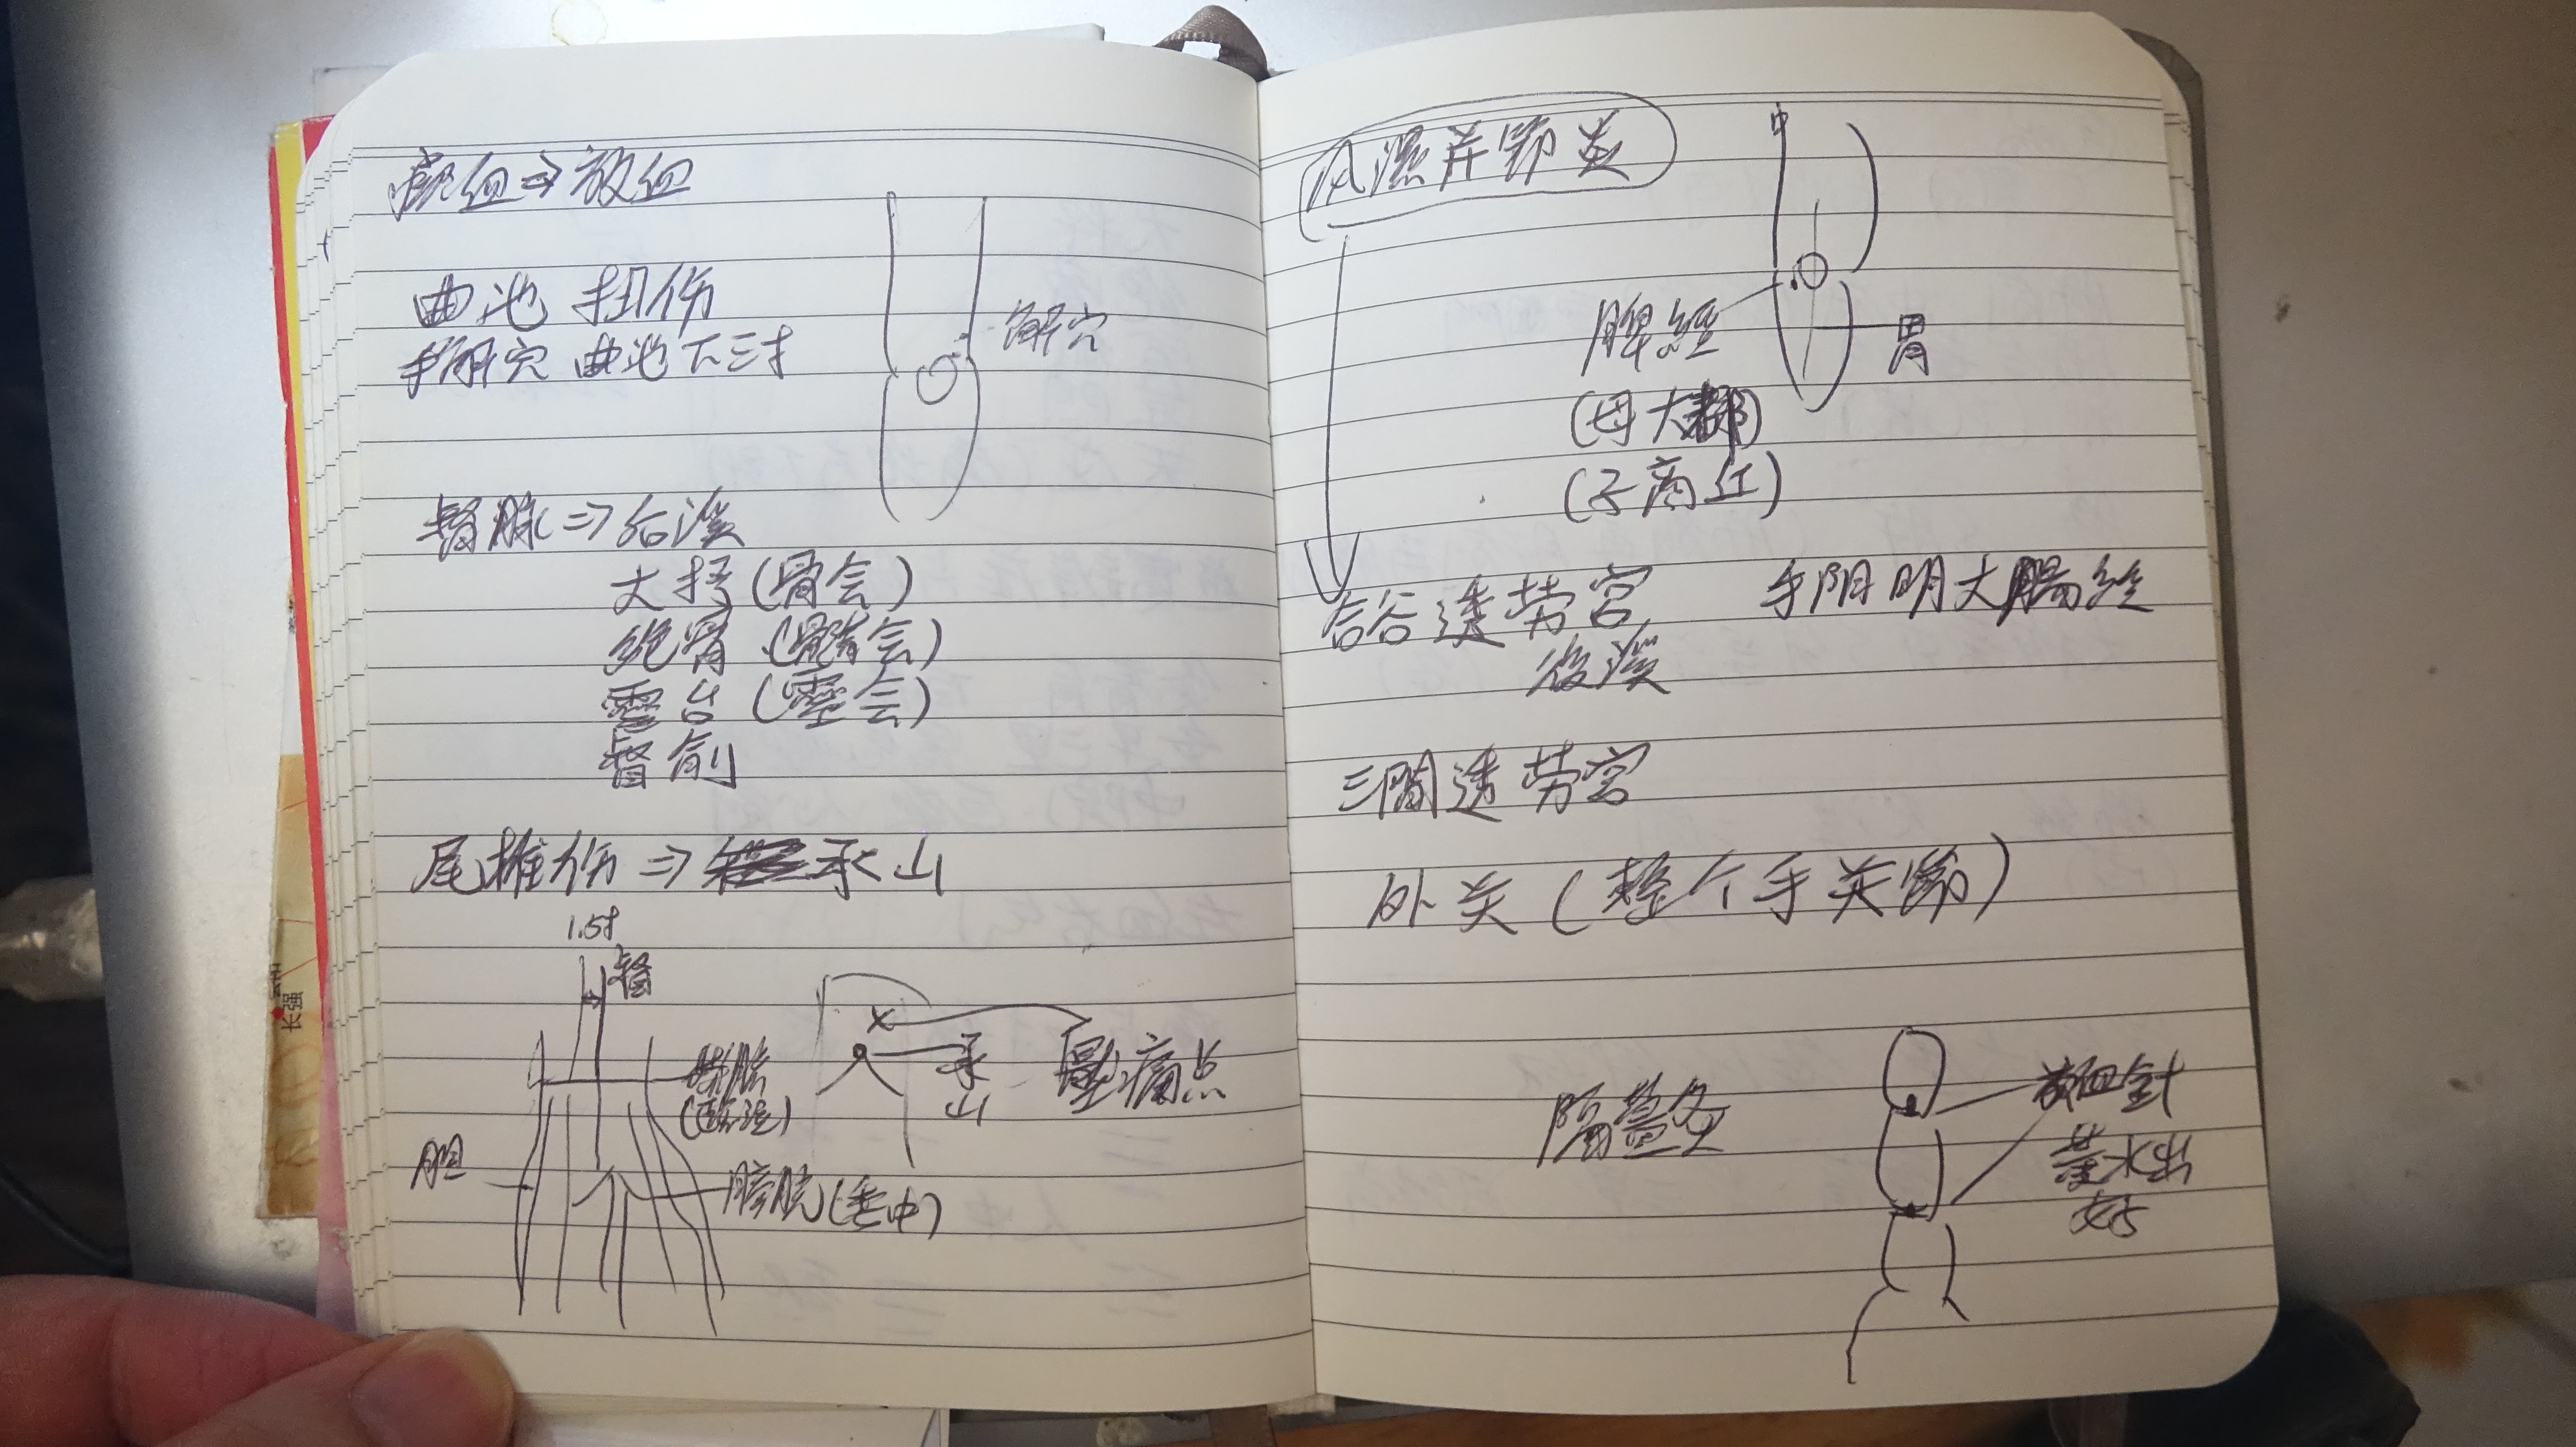 献血⇒放血
曲池 扭伤
手解穴 曲池下三寸
解穴
督脉⇒后溪
大抒(骨会)
绝骨(髓会)
靈台(靈会)
督俞
尾椎伤⇒承山
1.5寸
督
胆
膀胱(委中)
承山
壓痛点
长强
风湿关節炎
中
脾經
胃
(母大都)
(子商丘)
合谷透劳宫
後溪
手阳明大腸经
三間透劳宫
外关(整个手关節)
隔薑灸
放血針
黄水出
好